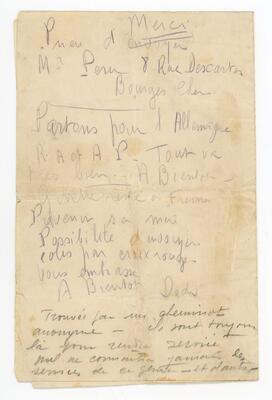 Merci
Prière d envoyer
Mr 8 Rue Descartes
Bourges Cher
Partons pour l Allemagne
R. A et A P. Tout va
très bien. A Bientôt
à Fresnes
Prévenir sa
Possibilité d envoyer
colis par croix rouge
Vous embrasse
A Bientôt Dédé
Trouvée par un cheminot
anonyme - ils sont toujours
là pour rendre service
nul ne connaitra jamais les
services de ce genre - et d'autres